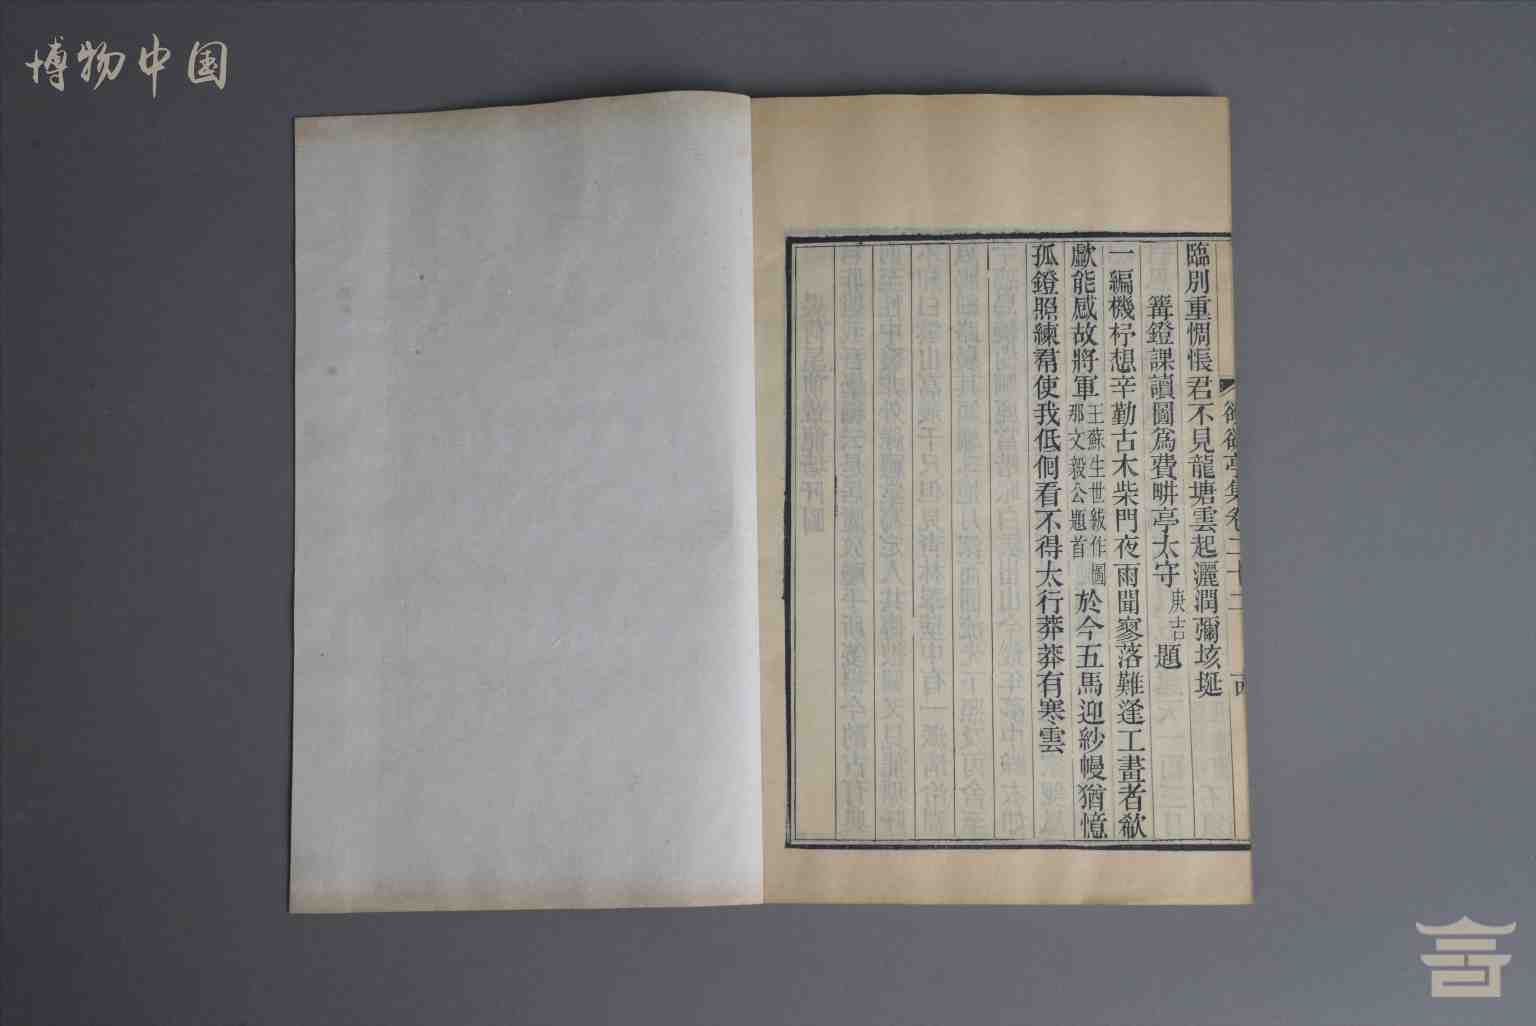 博物中国
䜱䜱亭集卷二十二
臨別重惆悵君不見龍塘雲起灑潤彌垓埏
篝鐙課讀圖爲費畊亭太守庚吉題
一編機杼想辛勤古木柴門夜雨聞寥落難逢工畫者欷
歔能感故將軍王蘇生世紱作圖那文毅公題首於今五馬迎紗幔猶憶
孤鐙照練帬使我低佪看不得太行莽莽有寒雲